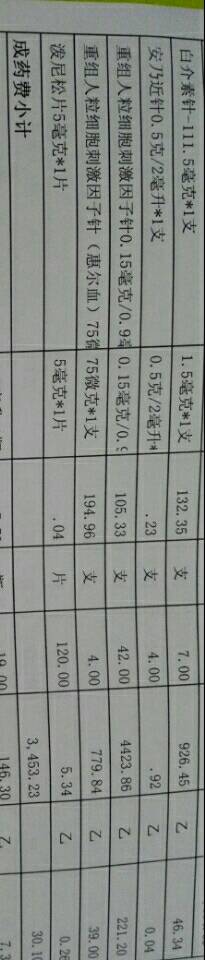 白介素针-111.5毫克*1支 1.5毫克*1支 132.35 支 7.00 926.45 乙 46.34
安乃近针0.5克/2毫升*1支 0.5克/2毫升* .23 支 4.00 .92 乙 0.04
重组人粒细胞刺激因子针0.15毫克/0.9毫 0.15毫克/0.9 105.33 支 42.00 4423.86 乙 221.20
重组人粒细胞刺激因子针（惠尔血）75微 75微克*1支 194.96 支 4.00 779.84 乙 39.00
泼尼松片5毫克*1片 5毫克*1片 .04 片 120.00 5.34 乙 0.26
成药费小计 3,453.23 30.10
19.00 146.30 乙 7.3